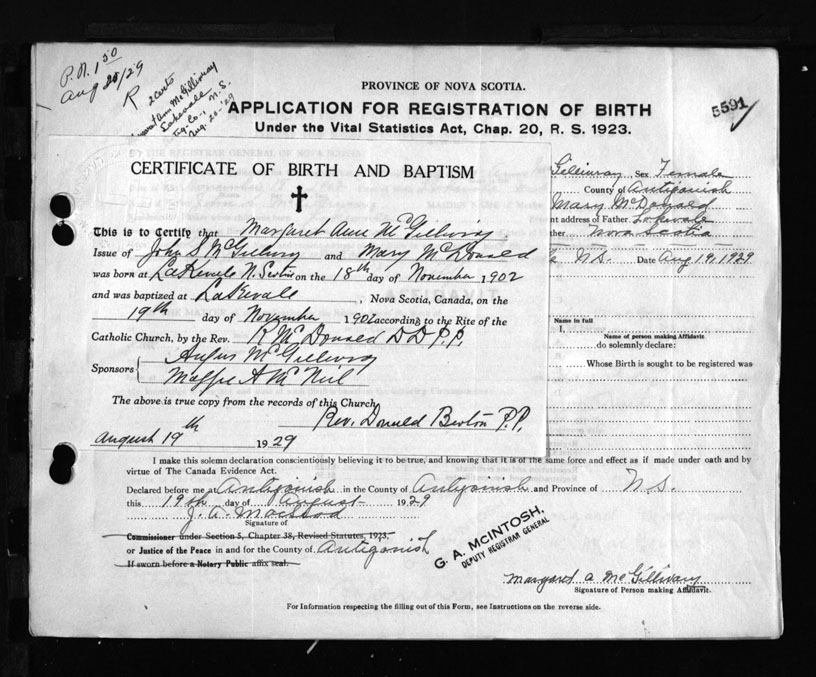 P.N. 1 50
Aug 20/29
R
2 Certs
Margaret Ann McGillivray
Lakevale
Ant. Co., N.S.
Aug. 20-'29
PROVINCE OF NOVA SCOTIA.
APPLICATION FOR REGISTRATION OF BIRTH
Under the Vital Statistics Act, Chap. 20, R. S. 1923.
5591
Gillivray Sex Female
County of Antigonish
Mary McDonald
nt address of Father Lakevale
ther Nova Scotia
N.S. Date Aug 19, 1929
CERTIFICATE OF BIRTH AND BAPTISM
This is to Certify that Margaret Ann McGillivry
Issue of John S McGillivry and Mary McDonald
was born at LaKevale N. Scotia on the 18th day of November 1902
and was baptized at LaKevale, Nova Scotia, Canada, on the
19th day of November 1902 according to the Rite of the
Catholic Church, by the Rev. R McDonald D D P.P.
Sponsors
Angus McGillivry
Maggie A McNeil
The above is true copy from the records of this Church.
Rev. Donald P.P.
August 19th 1929
Name in full
I,
Name of person making Affidavit.
do solemnly declare:
Whose Birth is sought to be registered was
I make this solemn declaration conscientiously believing it to be true, and knowing that it is of the same force and effect as if made under oath and by
virtue of The Canada Evidence Act.
Declared before me at Antigonish in the County of Antigonish and Province of N.S.
this 19th day of August 1929
J. A. MacIsaac
Signature of
Commissioner under Section 5, Chapter 38, Revised Statutes, 1923,
or Justice of the Peace in and for the County of Antigonish
If sworn before a Notary Public affix seal.
G. A. McINTOSH,
DEPUTY REGISTRAR GENERAL
Margaret A McGillivary
Signature of Person making Affidavit.
For Information respecting the filling out of this Form, see Instructions on the reverse side.